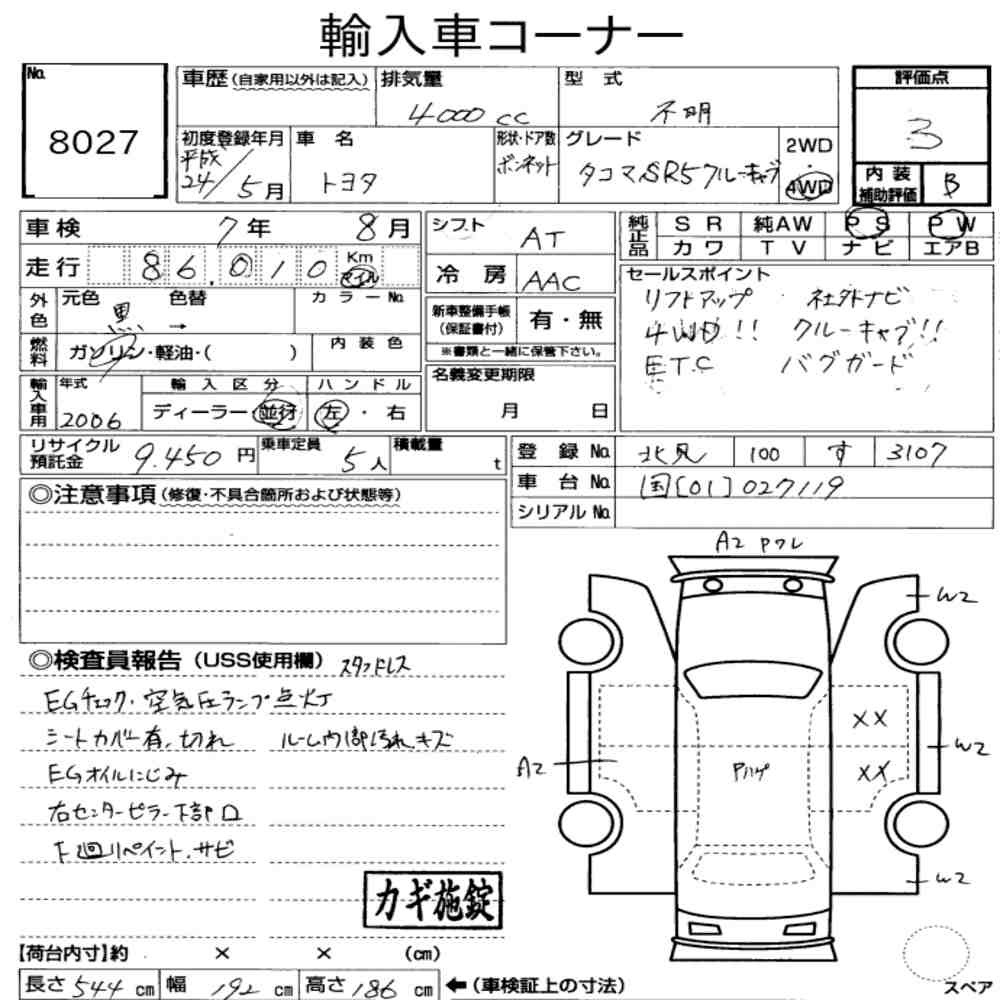 輸入車コーナー
No.
8027
車歴(自家用以外は記入)
排気量
4000 cc
型式
不明
評価点
3
初度登録年月
平成
24/5月
車名
トヨタ
形状・ドア数
ボンネット
グレード
タコマSR5クルーキャブ
2WD
・
4WD
内装
補助評価
B
車検
7年 8月
シフト
AT
純正品
SR 純AW PS PW
カワ TV ナビ エアB
走行
86,010.0
Km
マイル
冷房
AAC
セールスポイント
リフトアップ 社外ナビ
4WD!! クルーキャブ!!
ETC バグガード
外色
元色 色替
黒 →
カラーNo.
新車整備手帳
(保証書付)
有・無
※書類と一緒に保管下さい。
燃料
ガソリン・軽油・( )
内装色
名義変更期限
月 日
輸入車用
年式
2006
輸入区分
ディーラー 並行
ハンドル
左・右
リサイクル
預託金
9.450円
乗車定員
5人
積載量
t
登録No.
北見 100 す 3107
車台No.
国[01]027119
シリアルNo.
◎注意事項(修復・不具合箇所および状態等)
A2 Pワレ
W2
◎検査員報告(USS使用欄) スタッドレス
EGチェック・空気圧ランプ点火丁
シートカバー有、切れ ルーム内部汚れキズ
EGオイルにじみ
右センターピラー下部ロ
下廻リペイント、サビ
XX
W2
A2
Pハゲ
XX
W2
カギ施錠
【荷台内寸】約 × × (cm)
長さ544cm 幅192cm 高さ186cm ←(車検証上の寸法)
スペア